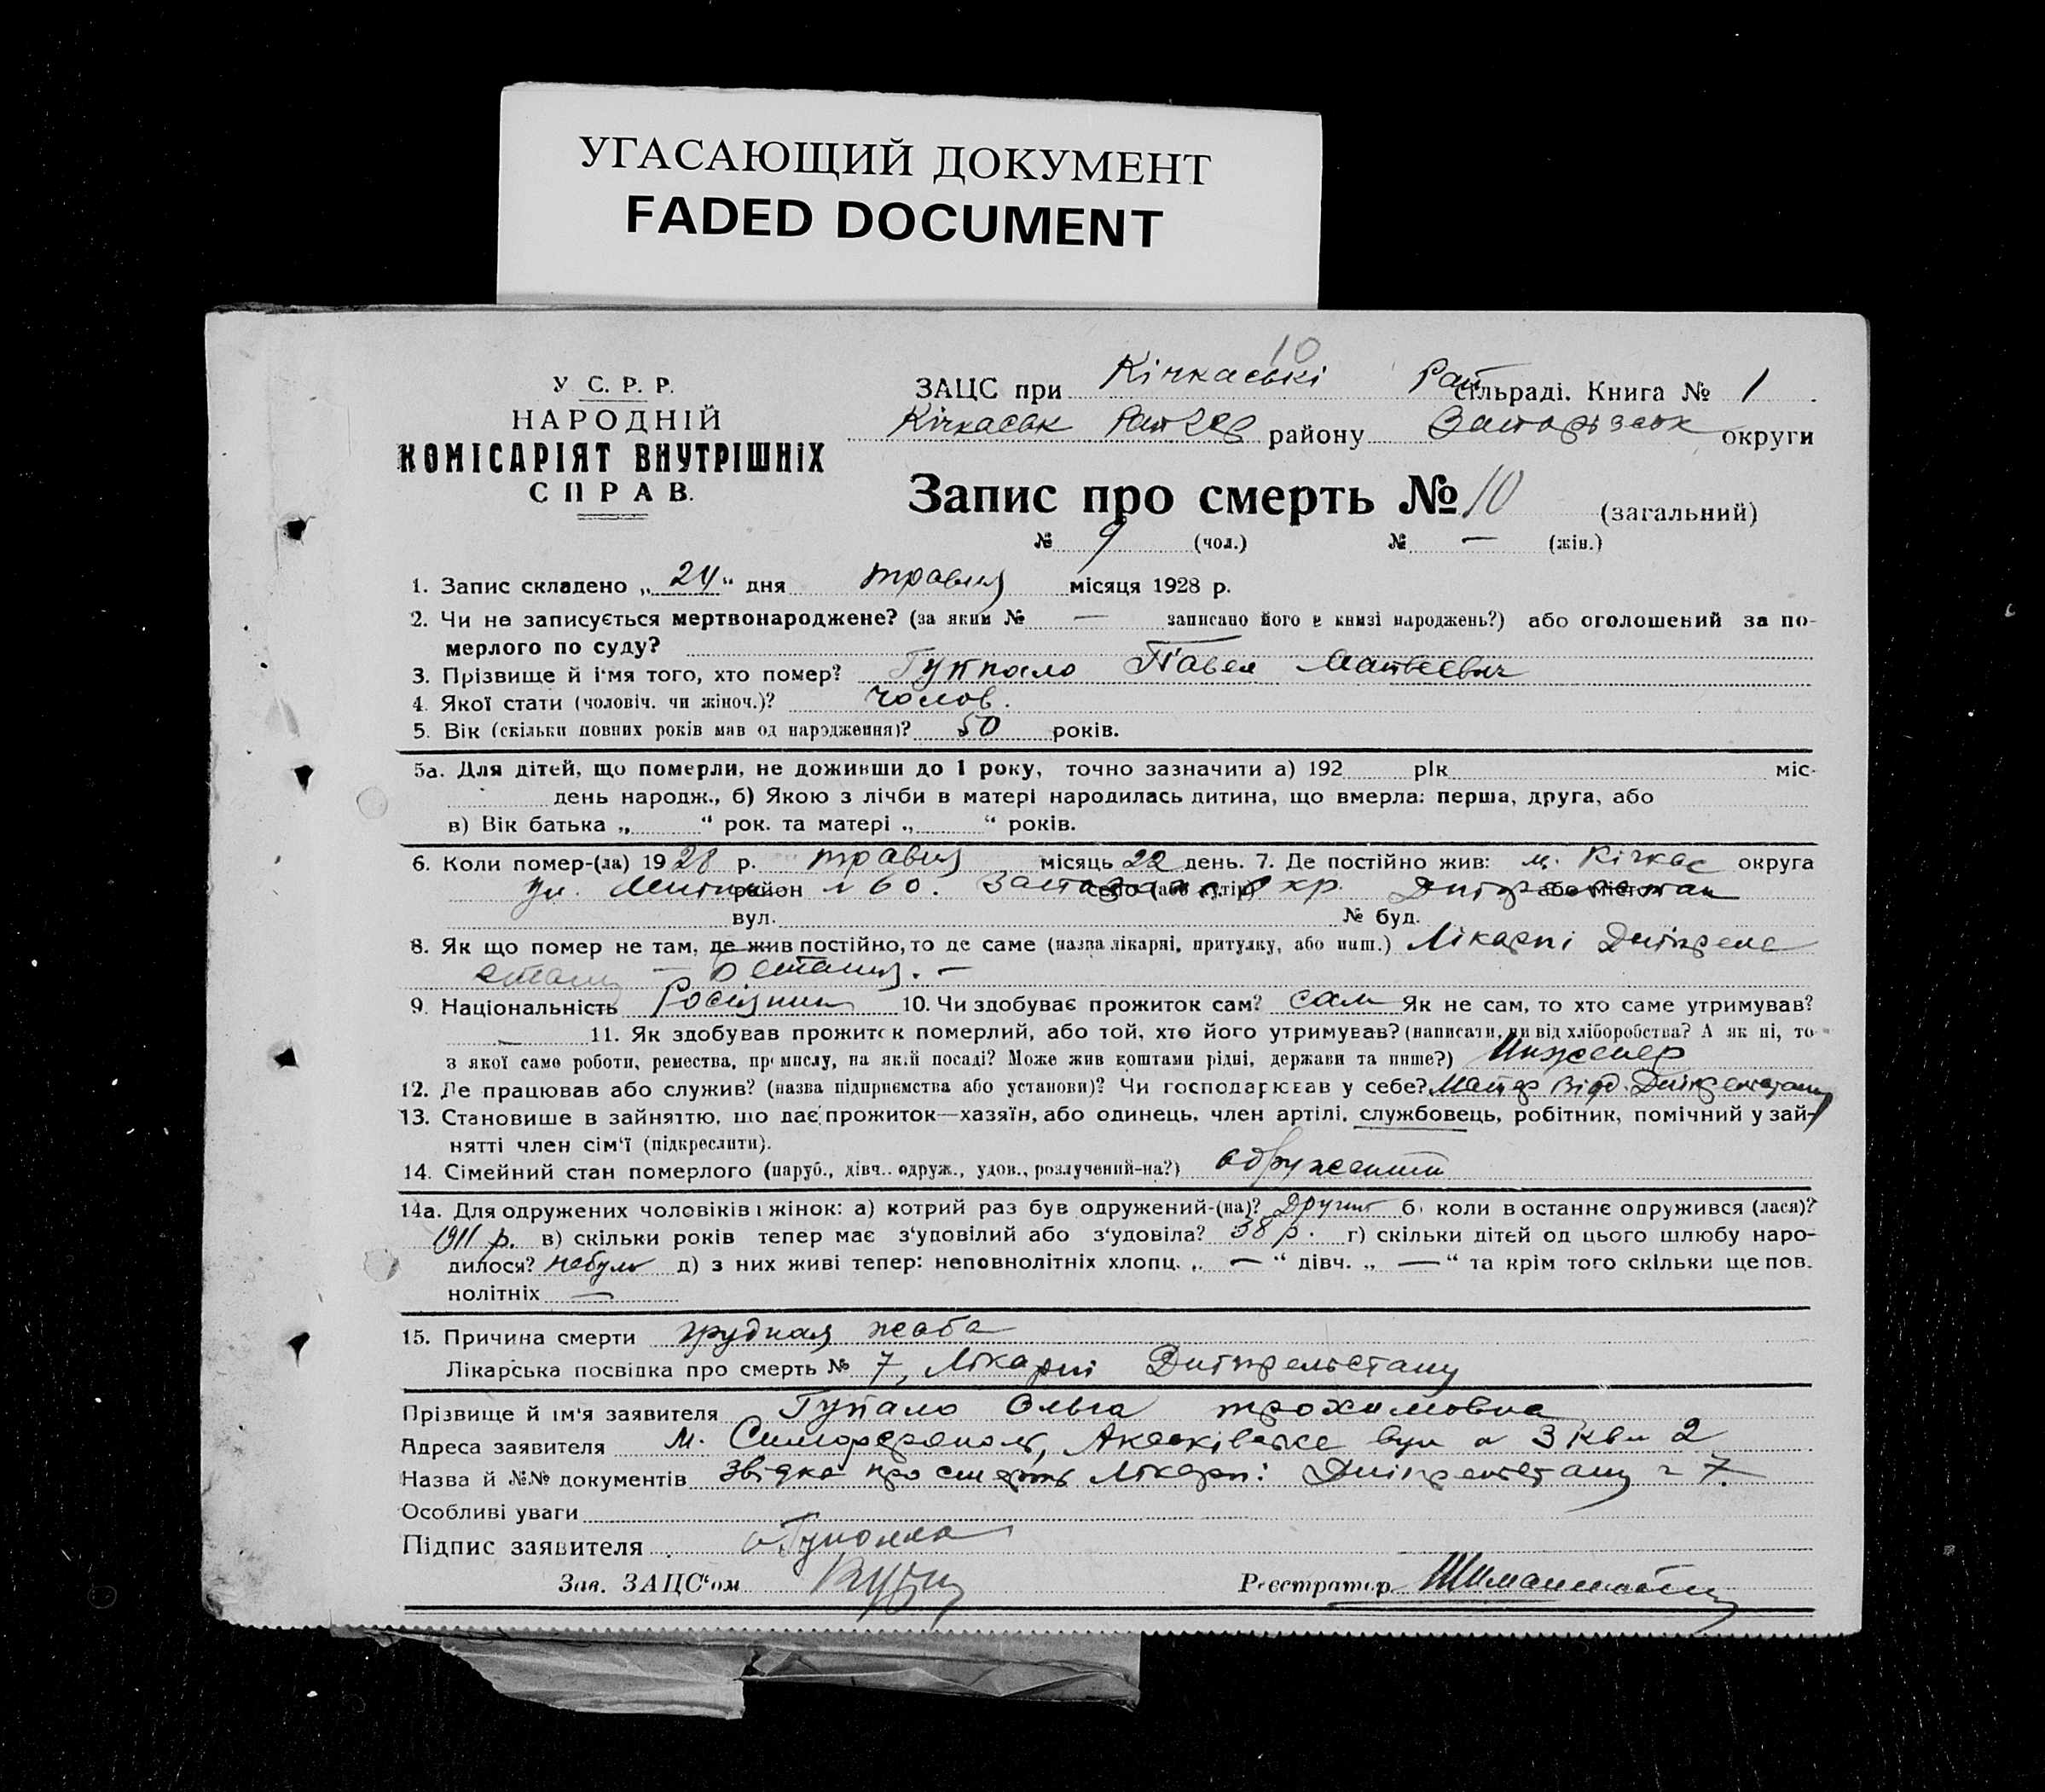 УГАСАЮЩИЙ ДОКУМЕНТ
FADED DOCUMENT
10
У С. Р. Р.
НАРОДНІЙ
КОМІСАРІЯТ ВНУТРІШНІХ
СПРАВ.
ЗАЦС при Кічкаські Рай сільраді. Книга № 1
Кічкаськ району округи
Запис про смерть № 10 (загальний)
№ 9 (чол.) № — (жін.)
1. Запис складено „24“ дня травня місяця 1928 р.
2. Чи не записується мертвонароджене? (за яким № — записано його в книзі народжень?) або оголошений за по-
мерлого по суду?
3. Прізвище й і'мя того, хто помер? Гуппало Павел Матвеевич
4. Якої стати (чоловіч. чи жіноч.)? чолов.
5. Вік (скільки повних років мав од народження)? 50 років.
5а. Для дітей, що померли, не доживши до 1 року, точно зазначити а) 192 рік міс-
день народж., б) Якою з лічби в матері народилась дитина, що вмерла: перша, друга, або
в) Вік батька „ “ рок. та матері „ “ років.
6. Коли помер-(ла) 1928 р. травня місяць 22 день. 7. Де постійно жив: м. Кічкас округа
ул. район № 60. село (або хутір) окр. або місто
вул. № буд.
8. Як що помер не там, де жив постійно, то де саме (назва лікарні, притулку, або инш.) Лікарні Дніпрельс
стану —
9. Національність 10. Чи здобуває прожиток сам? сам Як не сам, то хто саме утримував?
— 11. Як здобував прожиток померлий, або той, хто його утримував? (написати, чи від хліборобства? А як ні, то
з якої саме роботи, ремества, промислу, на якій посаді? Може жив коштами рідні, держави та инше?) Инженер
12. Де працював або служив? (назва підприємства або установи)? Чи господарював у себе? від. Дніпрельстану
13. Становище в зайняттю, що дає прожиток—хазяїн, або одинець, член артілі, службовець, робітник, помічний у зай-
нятті член сім'ї (підкреслити).
14. Сімейний стан померлого (паруб., дівч.. одруж., удов., розлучений-на?) одружений
14а. Для одружених чоловіків і жінок: а) котрий раз був одружений-(на)? Другий б) коли востаннє одружився (лася)?
1911 р. в) скільки років тепер має з'удовілий або з'удовіла? 38 р. г) скільки дітей од цього шлюбу наро-
дилося? небуло д) з них живі тепер: неповнолітніх хлопц. „ — “ дівч. „ — “ та крім того скільки ще пов.
нолітніх —
15. Причина смерти грудная жаба
Лікарська посвідка про смерть № 7, Лікарні Дніпрельстану
Прізвище й ім'я заявителя Гупало Ольга трохимовна
Адреса заявителя м. Симферополь, вул № 3 кв. 2
Назва й №№ документів Звідка про смерть Лікарні Дніпрельстану № 7
Особливі уваги
Підпис заявителя
Зав. ЗАЦС'ом
Реєстратор